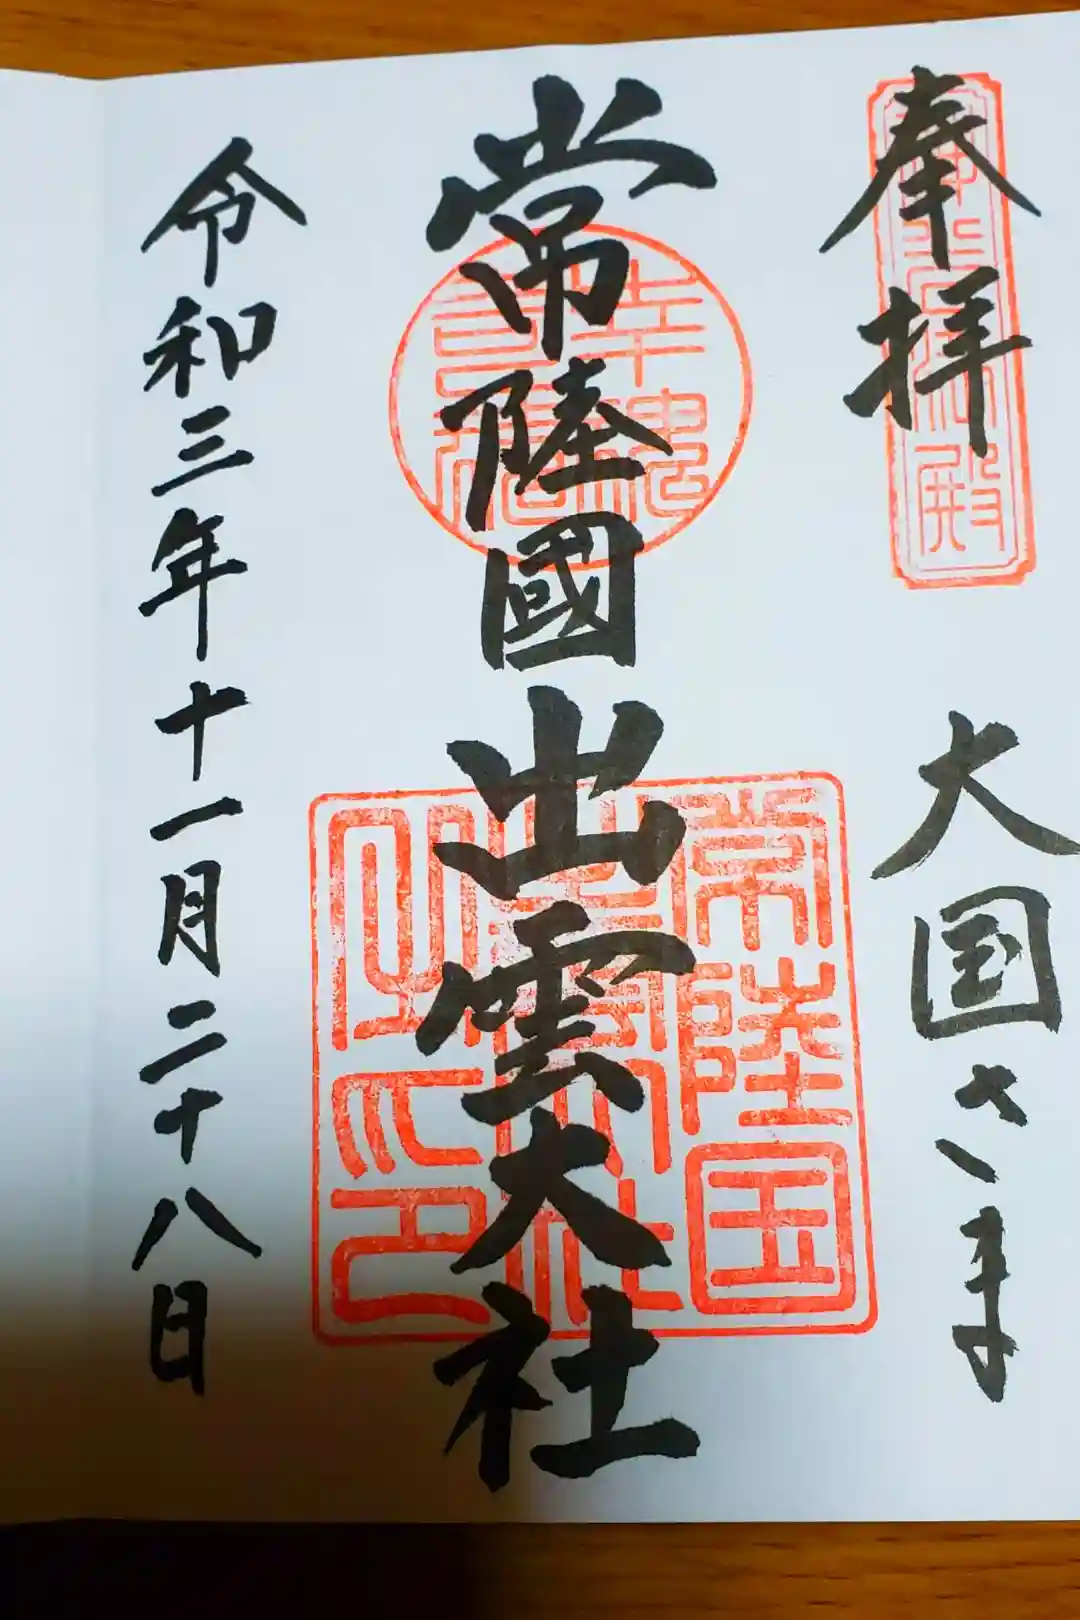 奉拝
大国さま
常陸國出雲大社
常陸国
之印
幸魂
令和三年十一月二十八日